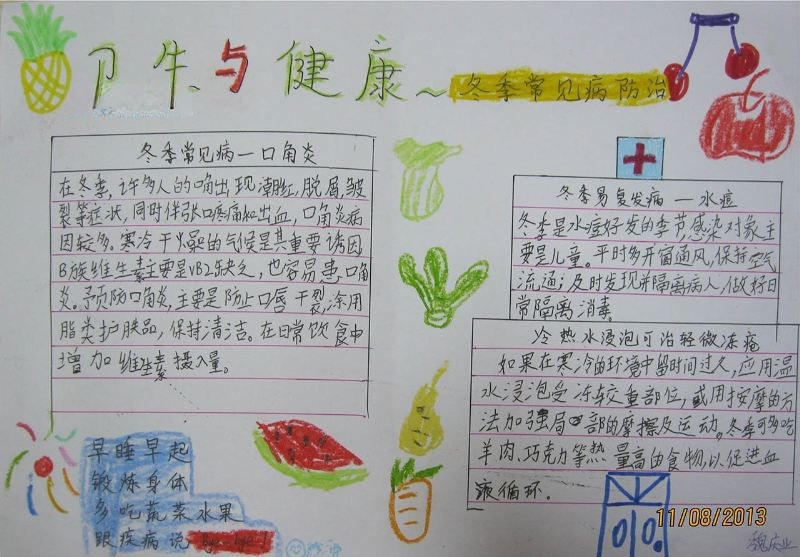 卫生与健康~冬季常见病防治
冬季常见病—口角炎
在冬季,许多人的口角出现潮红,脱屑皱
裂等症状,同时伴张口疼痛和出血,口角炎病
因较多.寒冷干燥的气候是其重要诱因
B族维生素主要是VB2缺乏,也容易患口角
炎。予预防口角炎,主要是防止口唇干裂,涂用
脂类护肤品,保持清洁。在日常饮食中
增加维生素摄入量。
冬季易复发病—水痘
冬季是水痘好发的季节感染对象主
要是儿童。平时多开窗通风,保持空气
流通;及时发现并隔离病人,做好日
常隔离消毒
冷热水浸泡可治轻微冻疮
如果在寒冷的环境中留时间过久,应用温
水浸泡受冻较重部位,或用按摩的方
法加强局部的摩擦及运动。冬季可多吃
羊肉、巧克力等热量高的食物,以促进血
液循环。
早睡早起
锻炼身体
多吃蔬菜水果
跟疾病说Bye-bye!
11/08/2013